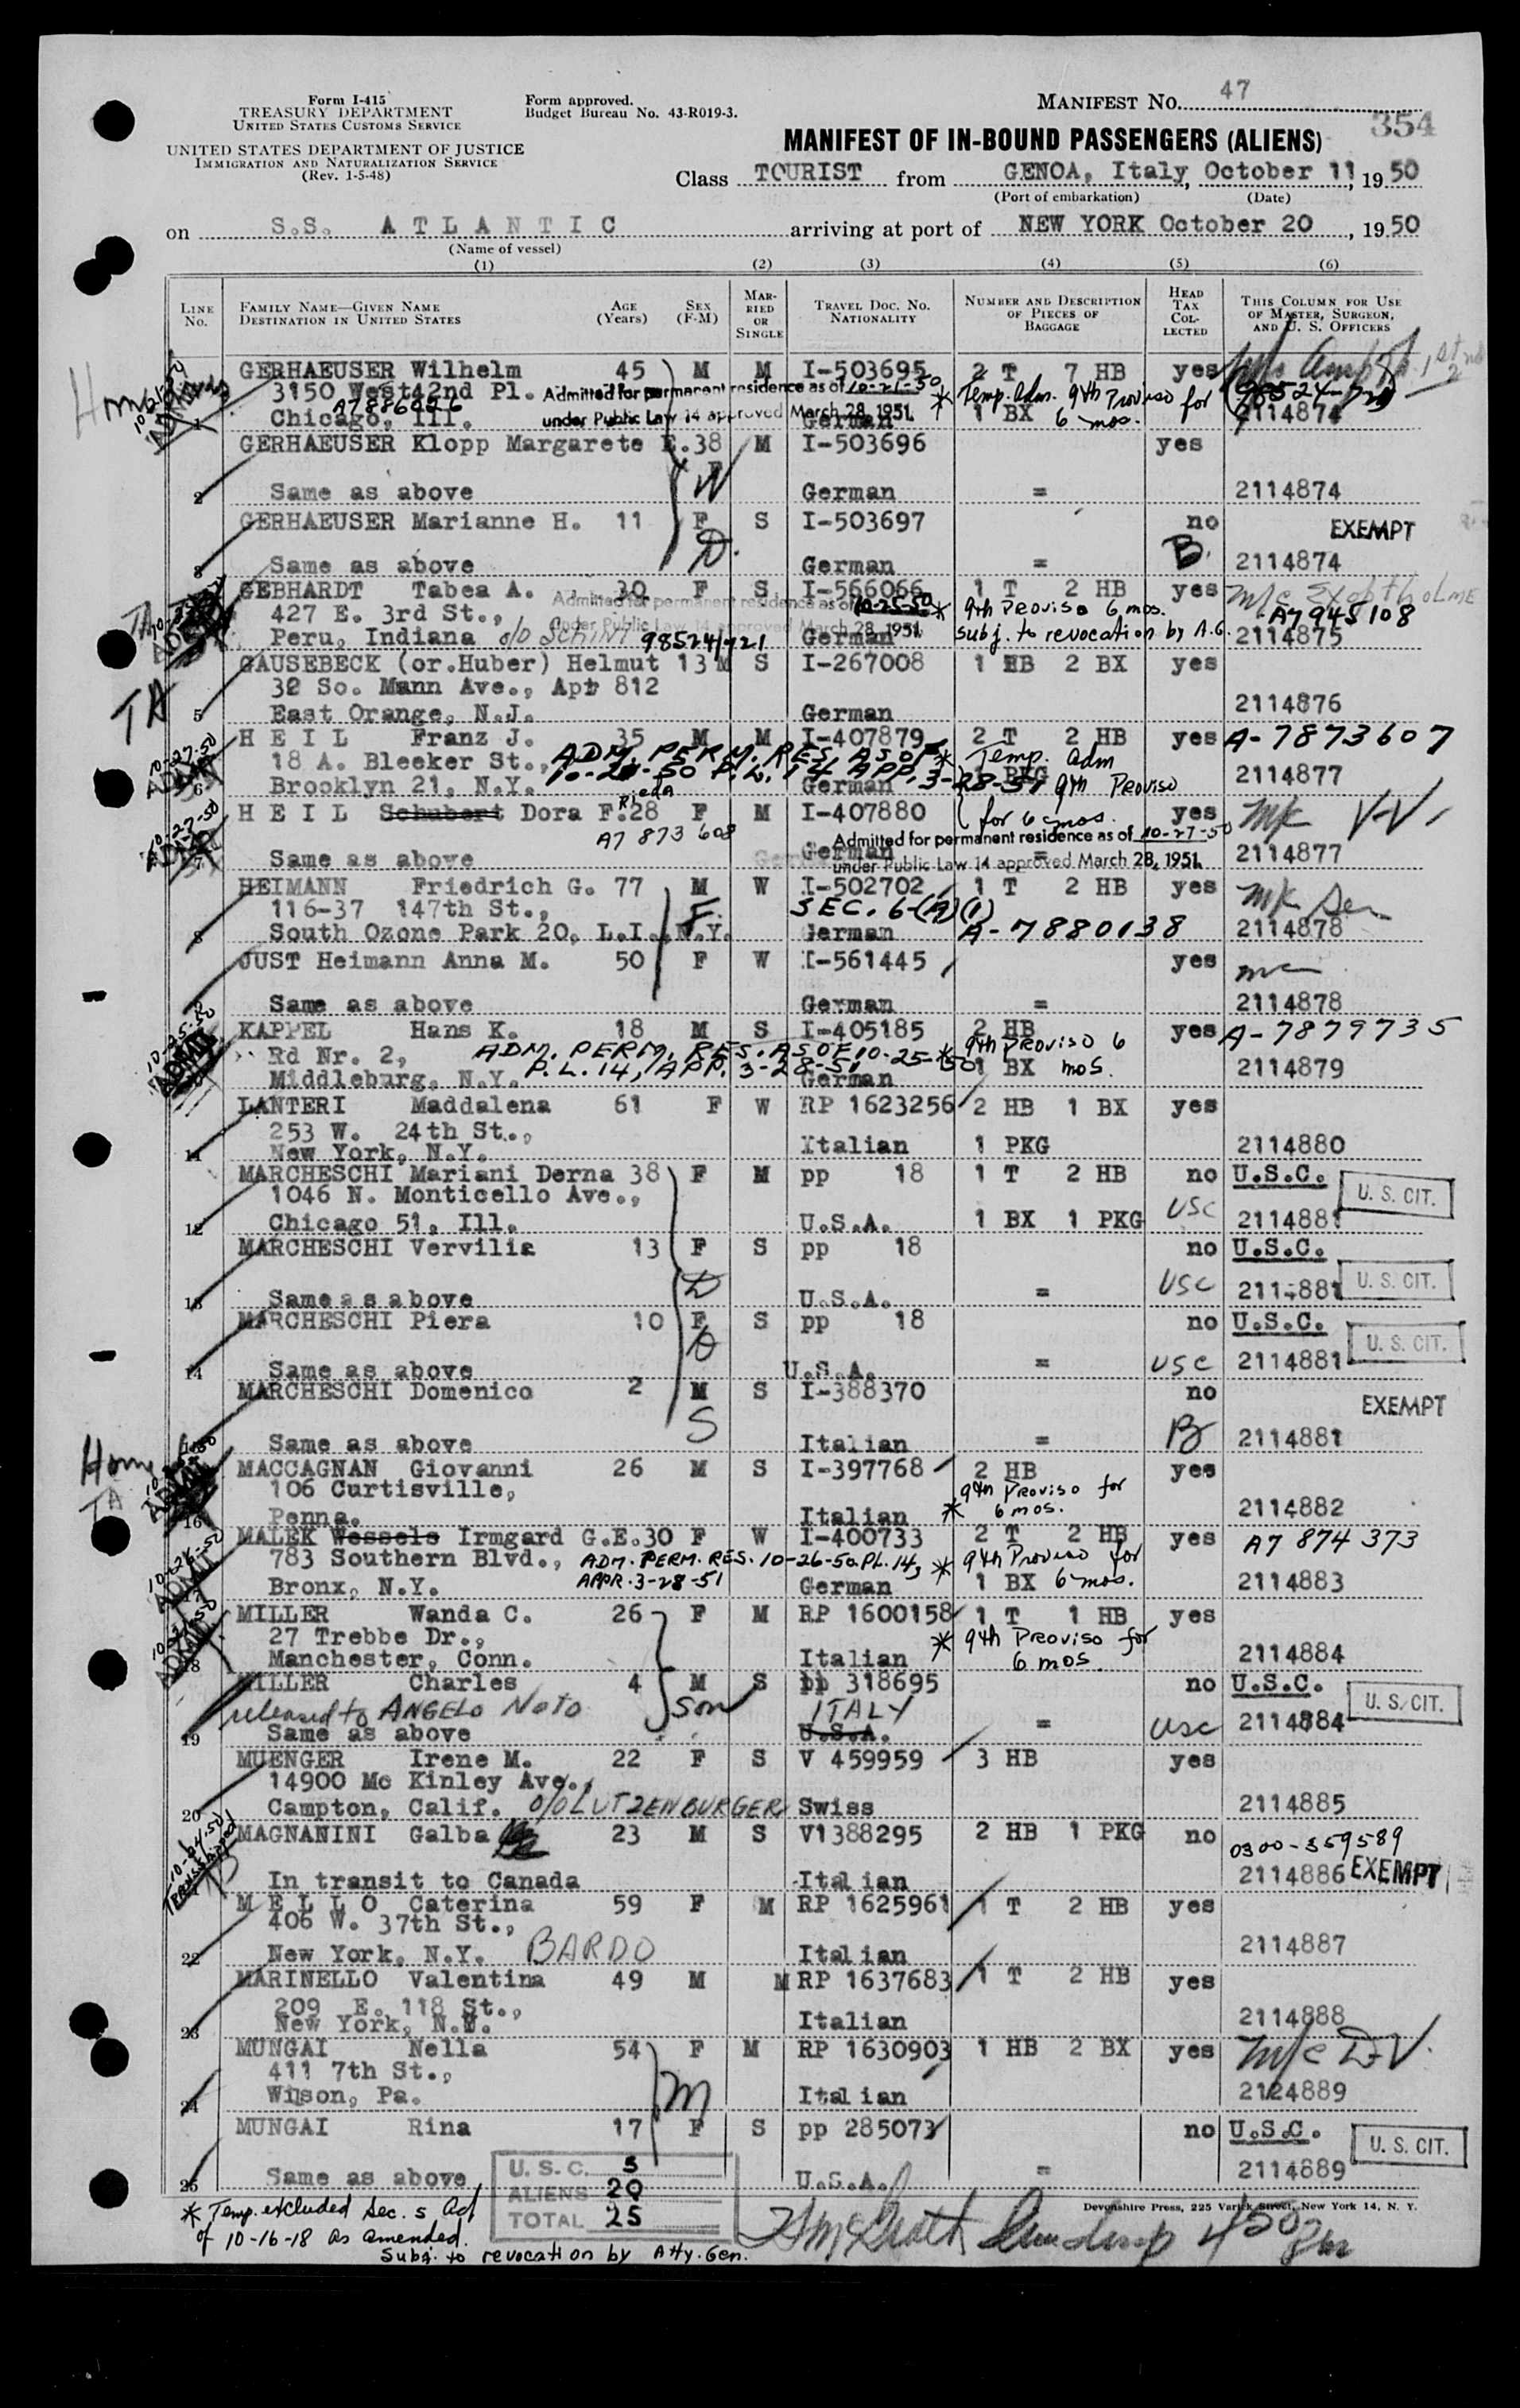 Form I-415
TREASURY DEPARTMENT
UNITED STATES CUSTOMS SERVICE
UNITED STATES DEPARTMENT OF JUSTICE
IMMIGRATION AND NATURALIZATION SERVICE
(Rev. 1-5-48)
Form approved.
Budget Bureau No. 43-R019-3.
MANIFEST NO. 47
354
MANIFEST OF IN-BOUND PASSENGERS (ALIENS)
Class TOURIST from GENOA, Italy, October 11, 1950
(Port of embarkation) (Date)
on S.S. ATLANTIC arriving at port of NEW YORK October 20, 1950
(Name of vessel)
(1) (2) (3) (4) (5) (6)
LINE NO. FAMILY NAME—GIVEN NAME DESTINATION IN UNITED STATES AGE (Years) SEX (F-M) MARRIED OR SINGLE TRAVEL DOC. NO. NATIONALITY NUMBER AND DESCRIPTION OF PIECES OF BAGGAGE HEAD TAX COLLECTED THIS COLUMN FOR USE OF MASTER, SURGEON, AND U. S. OFFICERS
GERHAEUSER Wilhelm 45 M M I-503695 2 T 7 HB yes
3150 West 42nd Pl. Admitted for permanent residence as of 10-21-50 * Temp. Adm. 9th Proviso for
A7886026
1 Chicago, Ill. under Public Law 14 approved March 28, 1951 German 1 BX 6 mos. 2114874
GERHAEUSER Klopp Margarete E. 38 M I-503696 yes
W
2 Same as above German = 2114874
GERHAEUSER Marianne H. 11 F S I-503697 no EXEMPT
D. B.
3 Same as above German = 2114874
GEBHARDT Tabea A. 30 F S I-566066 1 T 2 HB yes
427 E. 3rd St., Admitted for permanent residence as of 10-25-50 * 9th Proviso 6 mos. A7945108
Peru, Indiana under Public Law 14 approved March 28, 1951 German subj. to revocation by A.G. 2114875
98524/721
TA
GAUSEBECK (or.Huber) Helmut 13 M S I-267008 1 HB 2 BX yes
32 So. Mann Ave., Apt 812
5 East Orange, N.J. German 2114876
HEIL Franz J. 35 M M I-407879 2 T 2 HB yes A-7873607
18 A. Bleeker St., ADM. PERM. RES. AS OF * Temp. Adm
6 Brooklyn 21, N.Y. 10-27-50 P.L. 14 APP. 3-28-51 German 1 PKG 9th Proviso 2114877
HEIL Schubert Dora F. 28 F M I-407880 for 6 mos. yes
A7 873 608 Admitted for permanent residence as of 10-27-50
7 Same as above German under Public Law 14 approved March 28, 1951 = 2114877
HEIMANN Friedrich G. 77 M W I-502702 1 T 2 HB yes
116-37 147th St., F. SEC. 6-(A)(1)
8 South Ozone Park 20, L.I., N.Y. German A-7880138 2114878
JUST Heimann Anna M. 50 F W I-561445 yes
9 Same as above German = 2114878
KAPPEL Hans K. 18 M S I-405185 2 HB yes A-7879735
Rd Nr. 2, ADM. PERM. RES. AS OF 10-25-50 * 9th Proviso 6
10 Middleburg, N.Y. P.L. 14, APP. 3-28-51 German 1 BX mos. 2114879
LANTERI Maddalena 61 F W RP 1623256 2 HB 1 BX yes
253 W. 24th St.,
11 New York, N.Y. Italian 1 PKG 2114880
MARCHESCHI Mariani Derna 38 F M pp 18 1 T 2 HB no U.S.C. U. S. CIT.
1046 N. Monticello Ave.,
12 Chicago 51, Ill. U.S.A. 1 BX 1 PKG USC 2114881
MARCHESCHI Vervilia 13 F S pp 18 no U.S.C. U. S. CIT.
D
13 Same as above U.S.A. = USC 2114881
MARCHESCHI Piera 10 F S pp 18 no U.S.C. U. S. CIT.
D
14 Same as above U.S.A. = USC 2114881
MARCHESCHI Domenico 2 M S I-388370 no EXEMPT
S B
Same as above Italian = 2114881
Home
TA
MACCAGNAN Giovanni 26 M S I-397768 2 HB yes
106 Curtisville, 9th Proviso for
16 Penna. Italian * 6 mos. 2114882
MALEK Wessels Irmgard G.E. 30 F W I-400733 2 T 2 HB yes A7 874 373
783 Southern Blvd., ADM. PERM. RES. 10-26-50 P.L. 14, * 9th Proviso for
Bronx, N.Y. APPR. 3-28-51 German 1 BX 6 mos. 2114883
MILLER Wanda C. 26 F M RP 1600158 1 T 1 HB yes
27 Trebbe Dr., * 9th Proviso for
18 Manchester, Conn. Italian 6 mos. 2114884
MILLER Charles 4 M S pp 318695 no U.S.C. U. S. CIT.
released to ANGELO NOTO son ITALY
19 Same as above U.S.A. = USC 2114884
MUENGER Irene M. 22 F S V 459959 3 HB yes
14900 Mc Kinley Ave.,
20 Campton, Calif. c/o LUTZENBURGER Swiss 2114885
MAGNANINI Galba 23 M S V1388295 2 HB 1 PKG no 0300-359589
10-24-50 Transshipped
In transit to Canada Italian 2114886 EXEMPT
MELLO Caterina 59 F M RP 1625961 1 T 2 HB yes
406 W. 37th St.,
22 New York, N.Y. BARDO Italian 2114887
MARINELLO Valentina 49 M M RP 1637683 1 T 2 HB yes
209 E. 118 St.,
23 New York, N.Y. Italian 2114888
MUNGAI Nella 54 F M RP 1630903 1 HB 2 BX yes
411 7th St.,
24 Wilson, Pa. Italian 2124889
MUNGAI Rina 17 F S pp 285073 no U.S.C. U. S. CIT.
25 Same as above U.S.A. = 2114889
U. S. C. 5
ALIENS 20
TOTAL 25
Devonshire Press, 225 Varick Street, New York 14, N. Y.
* Temp. excluded Sec. 5, Act
of 10-16-18 as amended.
Subj. to revocation by Atty. Gen.